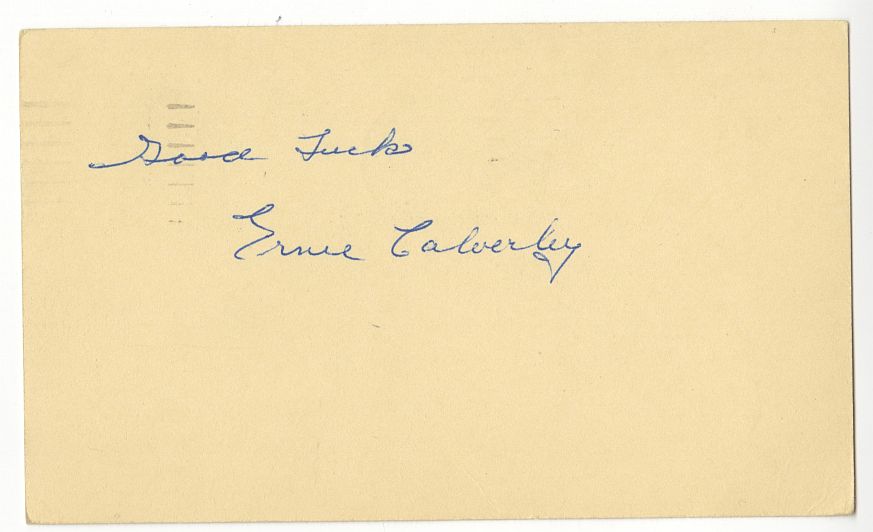 Good Luck
Ernie Calverley